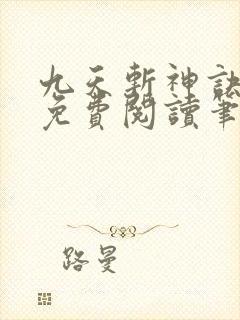 九天斬神訣
免費閱讀筆
路曼